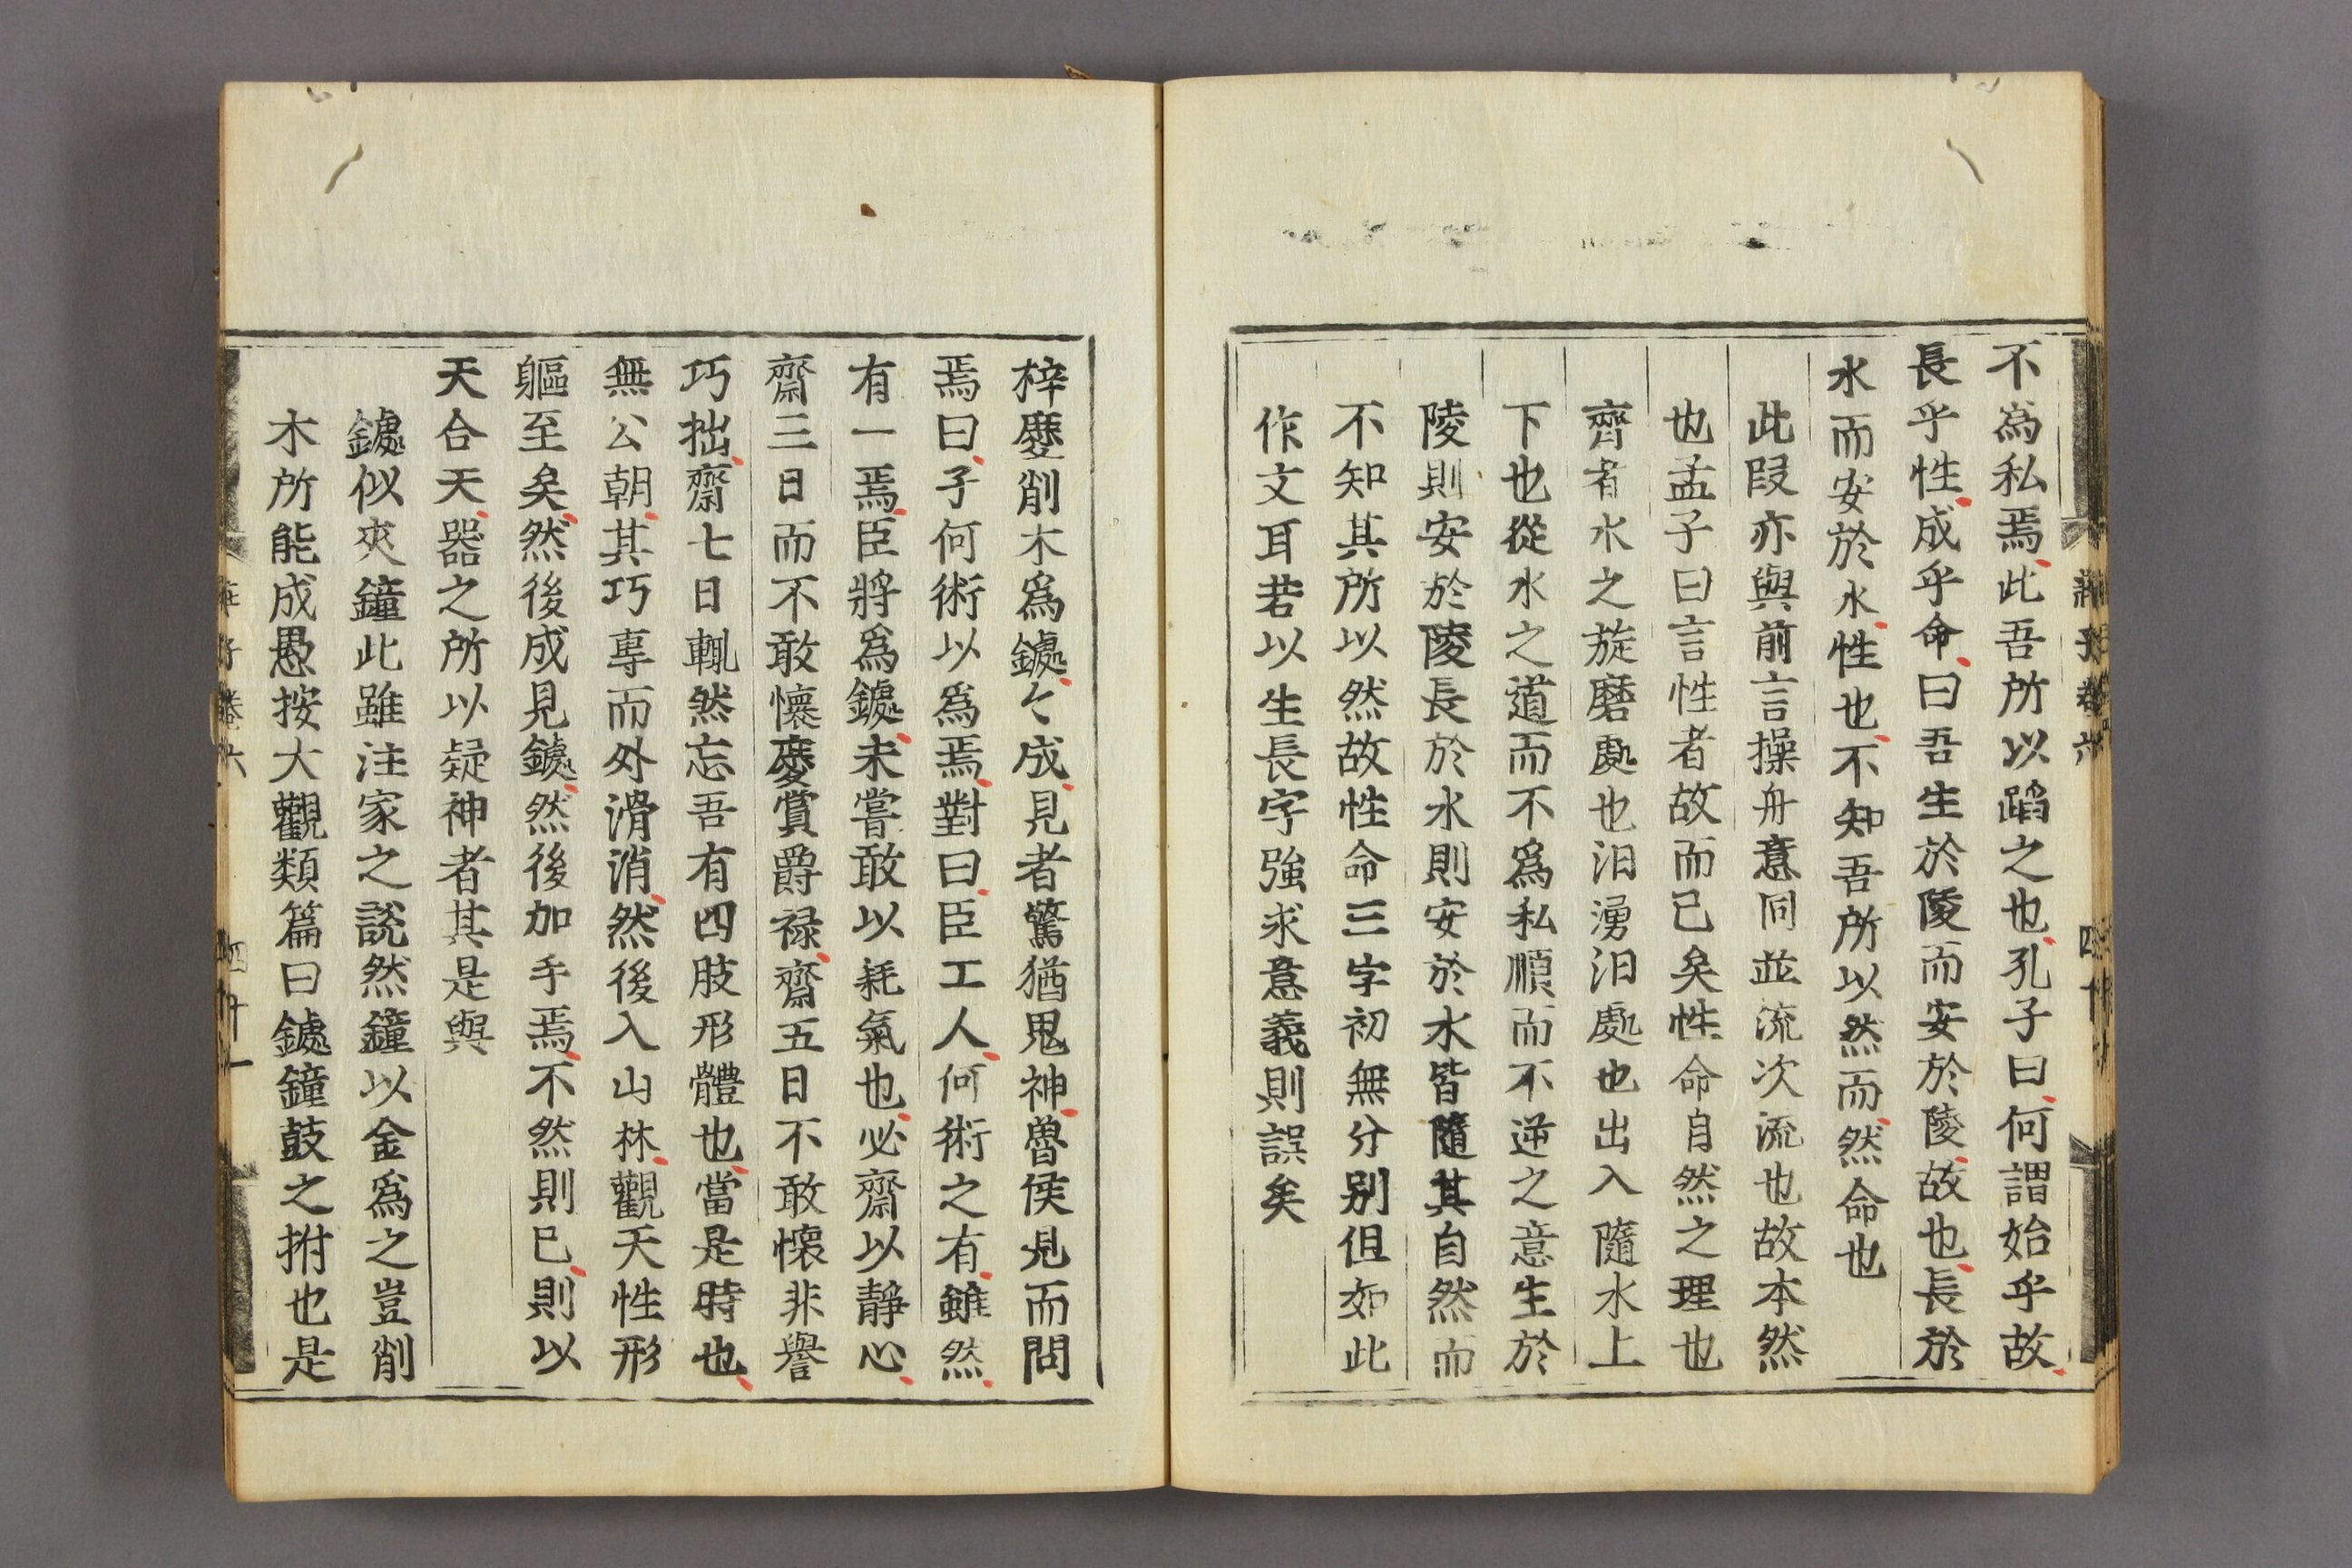 不為私焉此吾所以蹈之也孔子曰何謂始乎故
長乎性成乎命曰吾生於陵而安於陵故也長於
水而安於水性也不知吾所以然而然命也
此段亦與前言操舟意同並流次流也故本然
也孟子曰言性者故而已矣性命自然之理也
齊者水之旋磨處也汩湧汩處也出入隨水上
下也從水之道而不為私順而不逆之意生於
陵則安於陵長於水則安於水皆隨其自然而
不知其所以然故性命三字初無分別但如此
作文耳若以生長字強求意義則誤矣
梓慶削木為鐻々成見者驚猶鬼神魯侯見而問
焉曰子何術以為焉對曰臣工人何術之有雖然
有一焉臣將為鐻未嘗敢以耗氣也必齋以靜心
齋三日而不敢懷慶賞爵禄齋五日不敢懷非譽
巧拙齋七日輒然忘吾有四肢形體也當是時也
無公朝其巧專而外滑消然後入山林觀天性形
軀至矣然後成見鐻然後加手焉不然則已則以
天合天器之所以疑神者其是與
鐻似夾鐘此雖注家之説然鐘以金為之豈削
木所能成愚按大觀類篇曰鐻鐘鼓之拊也是
莊子卷六
四十一